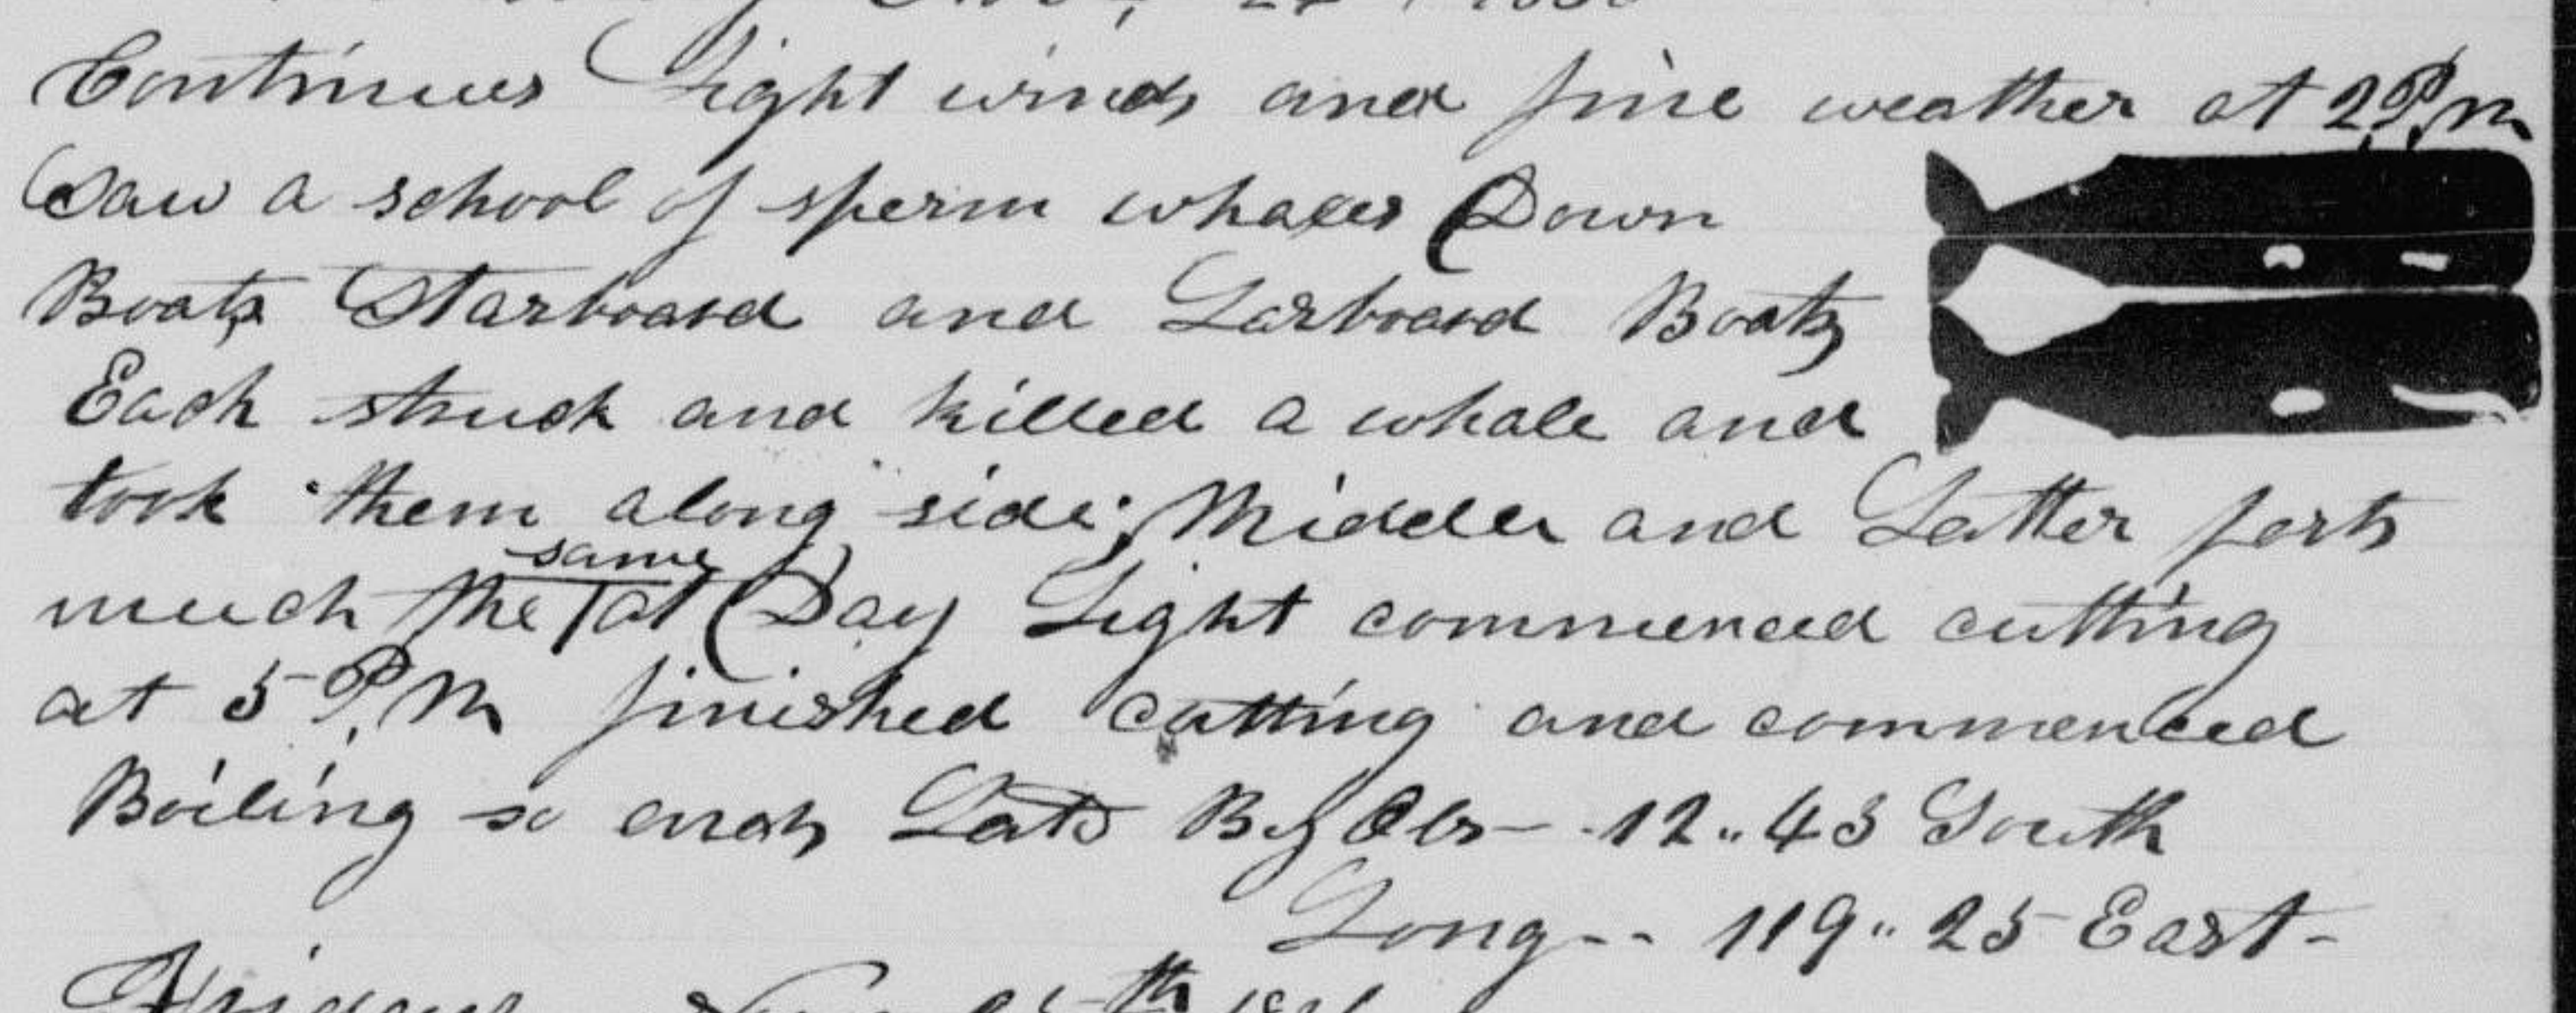 Continues Light winds and fine weather at 2 P.m
Saw a school of sperm whales Down
Boats Starboard and Larboard Boats
Each struck and killed a whale and
took them along side; Middle and Latter parts
much the same at Day Light commenced cutting
at 5 P.M finished cutting and commenced
Boiling so ends Latd By Obs - 12.. 43 South
Long -- 119.. 25 East -
Friday